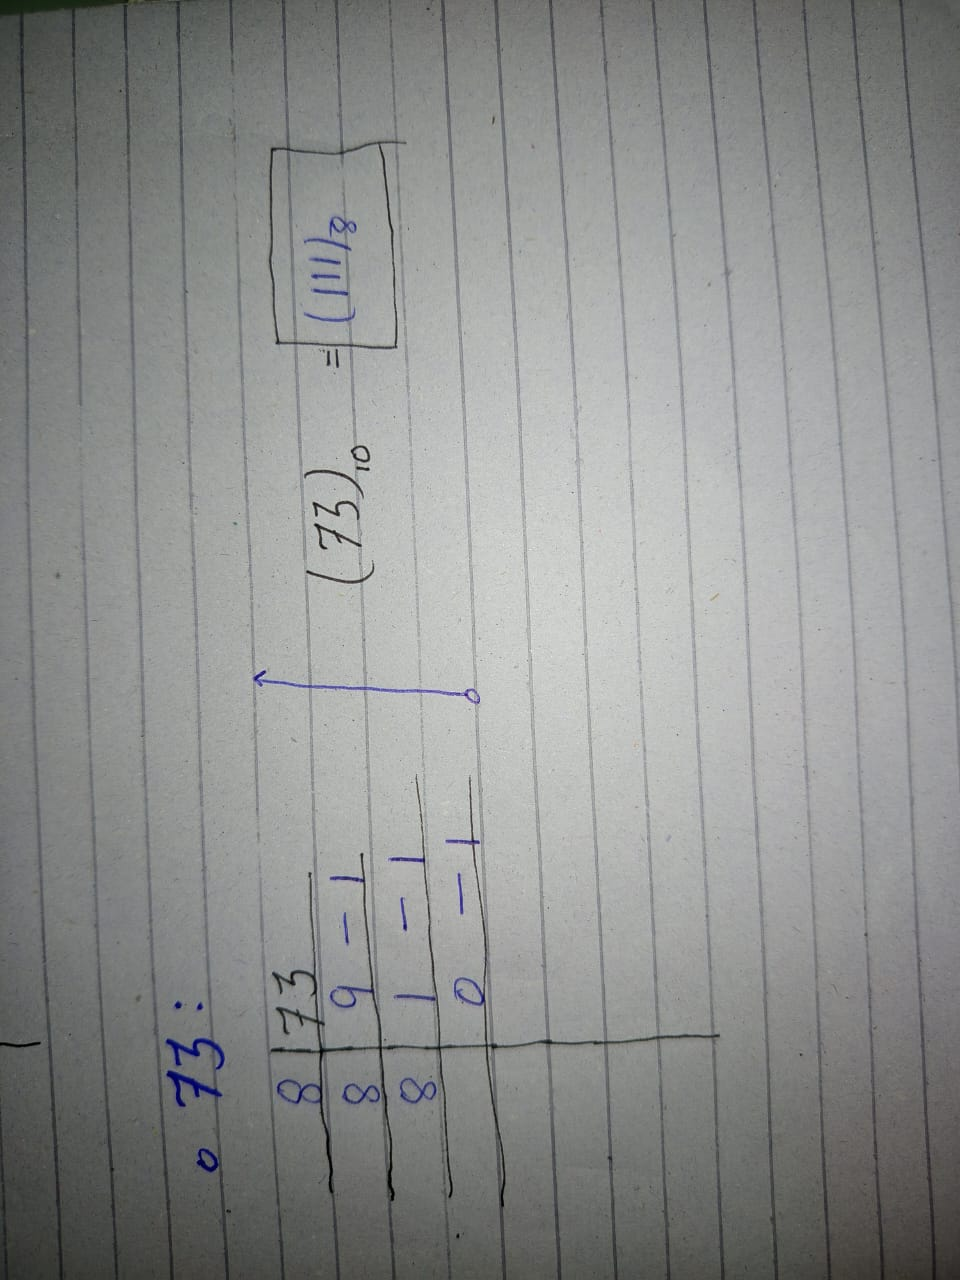 ° 73:
8 | 73
8 | 9 - 1
8 | 1 - 1
0 - 1
(73)10 = (111)8